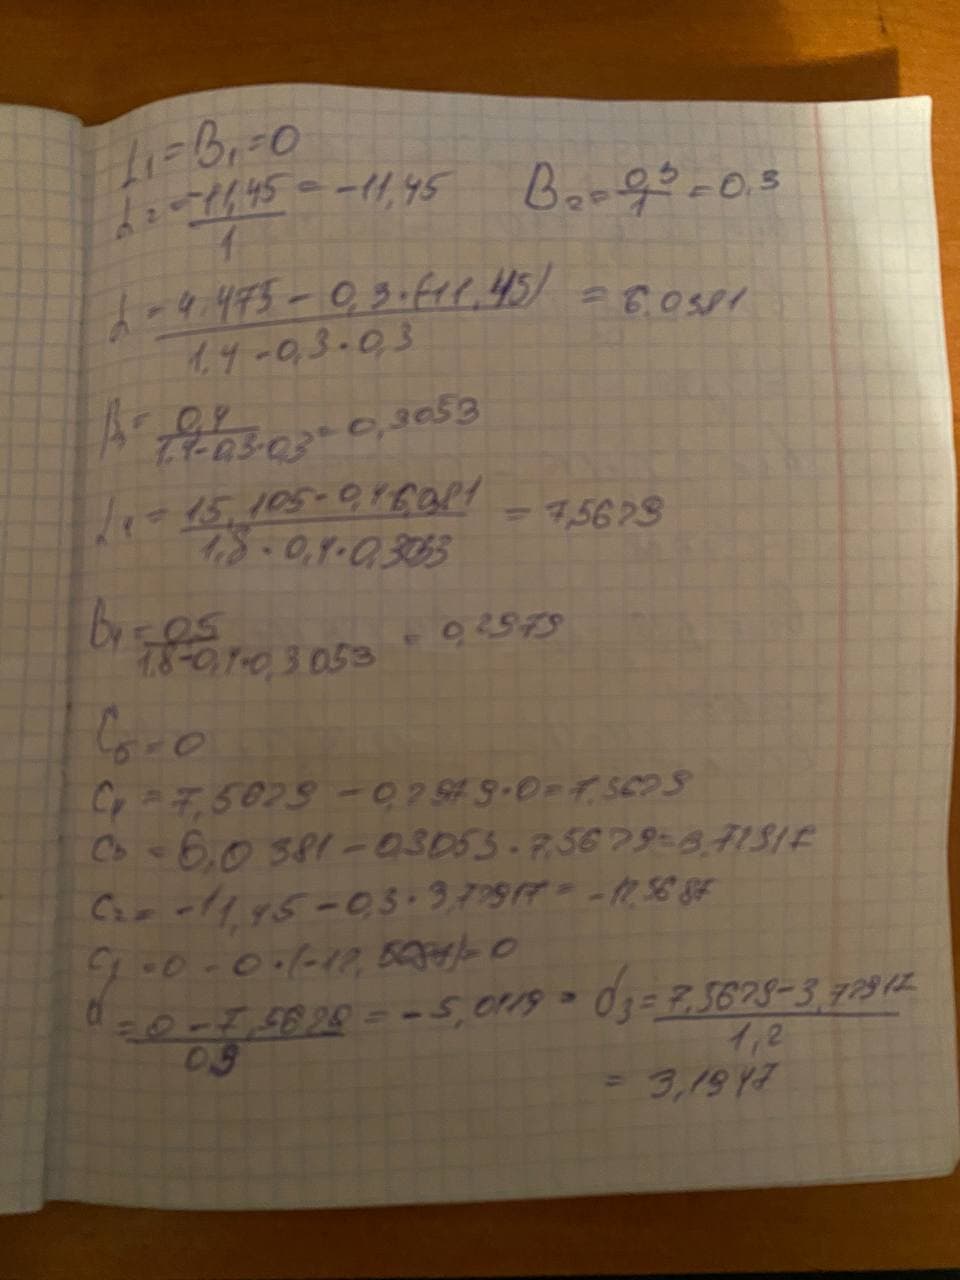 L₁ = B₁ = 0
L₂ = -11,45/1 = -11,45   B₂ = 0,3/1 = 0.3
L = 4.475 - 0,3·(-11,45) / 1.4 - 0,3·0,3 = 6.0381
β = 0,4 / 1.4 - 0,3·0,3 = 0,3053
L₄ = 15,105 - 0,4·6,0381 / 1,8 · 0,4 · 0,3053 = 7,5629
B₄ = 0,5 / 1.8 - 0,4·0,3053 = 0,2979
C₅ = 0
C₄ = 7,5629 - 0,2979·0 = 7,5629
C₃ = 6,0381 - 0,3053·7,5629 = 3,72917
C₂ = -11,45 - 0,3·3,72917 = -12,5687
C₁ = 0 - 0·(-12, ) = 0
d = 0 - 7,5629 / 0,9 =   d₃ = 7,5629 - 3,72917 / 1,2
= 3,1947